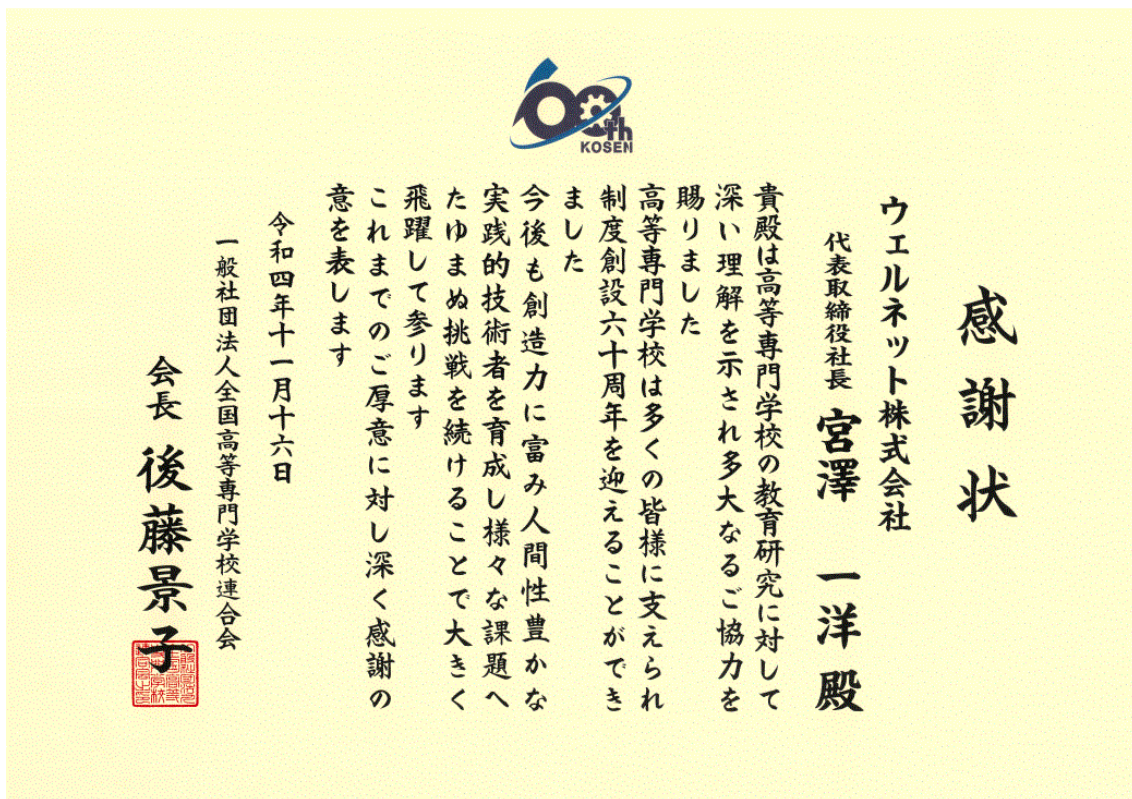 60th
KOSEN
感謝状
ウェルネット株式会社
代表取締役社長 宮澤 一洋 殿
貴殿は高等専門学校の教育研究に対して
深い理解を示され多大なるご協力を
賜りました
高等専門学校は多くの皆様に支えられ
制度創設六十周年を迎えることができ
ました
今後も創造力に富み人間性豊かな
実践的技術者を育成し様々な課題へ
たゆまぬ挑戦を続けることで大きく
飛躍して参ります
これまでのご厚意に対し深く感謝の
意を表します
令和四年十一月十六日
一般社団法人全国高等専門学校連合会
会長 後藤景子